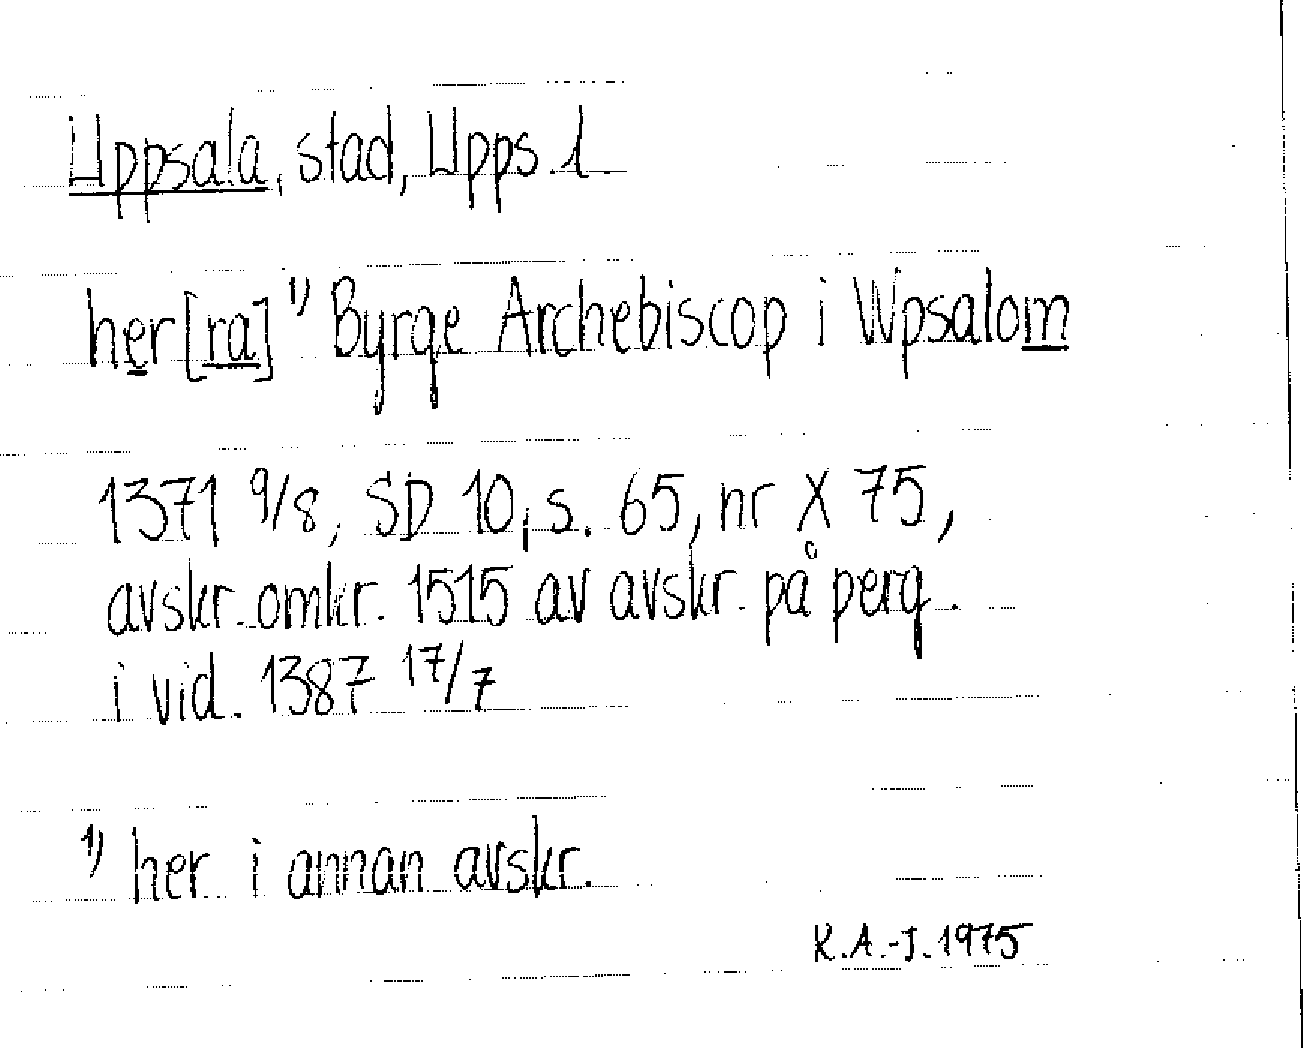 Uppsala, stad, Upps. l.
her[ra] 1) Byrge Archebiscop i Wpsalom
1371 9/8, SD 10, s. 65, nr X 75,
avskr. omkr. 1515 av avskr. på perg.
i vid. 1387 17/7
1) her i annan avskr.
K.A.-J. 1975